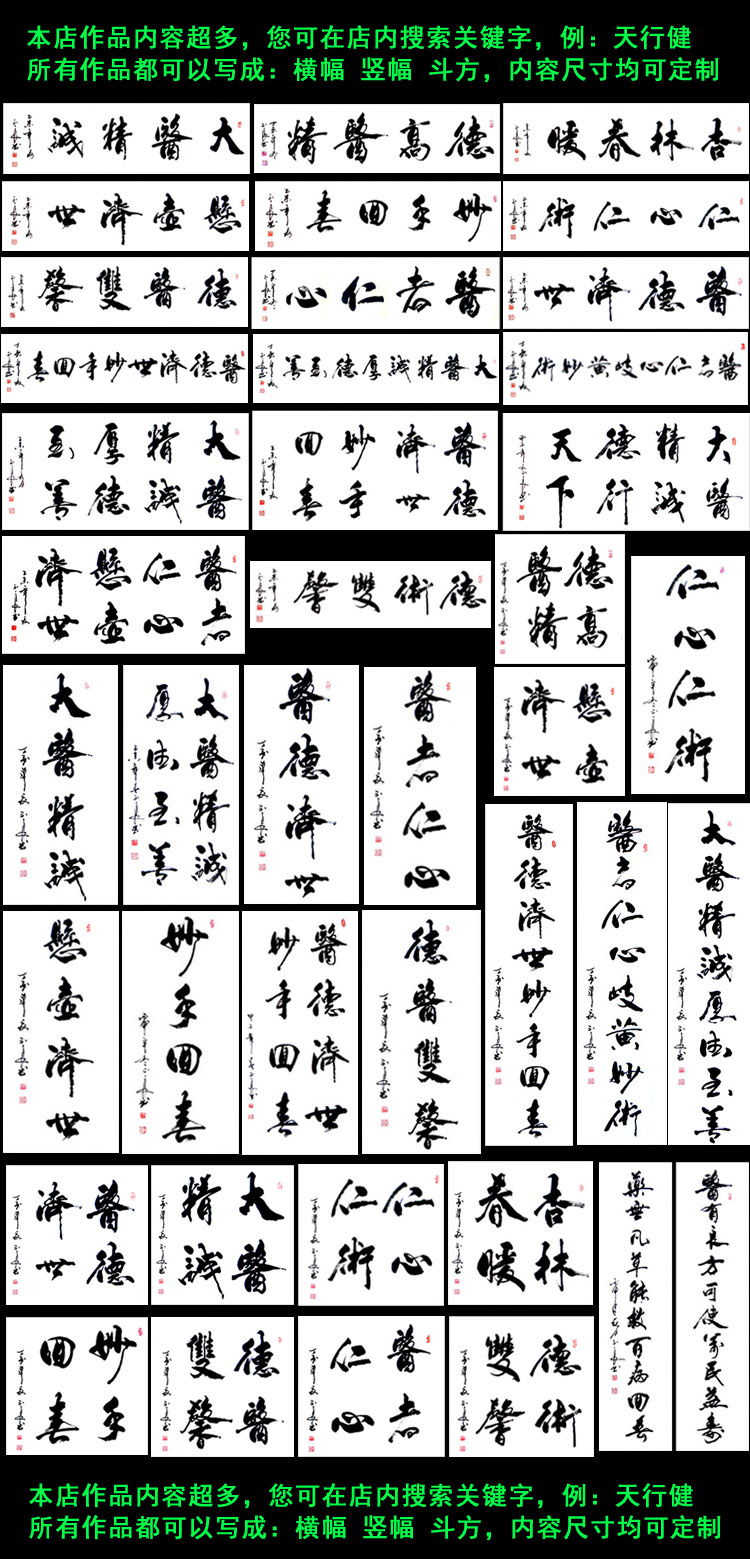 本店作品内容超多，您可在店内搜索关键字，例：天行健
所有作品都可以写成：横幅 竖幅 斗方，内容尺寸均可定制
大醫精誠
德高醫精
杏林春暖
懸壺濟世
妙手回春
仁心仁術
德醫雙馨
醫者仁心
醫德濟世
醫德濟世妙手回春
大醫精誠厚德至善
醫者仁心岐黃妙術
大醫精誠厚德至善
醫德濟世妙手回春
大醫精誠德行天下
醫者仁心懸壺濟世
德術雙馨
德高醫精
仁心仁術
懸壺濟世
大醫精誠
大醫精誠厚德至善
醫德濟世
醫者仁心
醫德濟世妙手回春
醫者仁心岐黃妙術
大醫精誠厚德至善
懸壺濟世
妙手回春
醫德濟世妙手回春
德醫雙馨
醫德濟世
大醫精誠
仁心仁術
杏林春暖
醫有良方可使萬民益壽
藥無凡草能救百病回春
妙手回春
德醫雙馨
醫者仁心
德術雙馨
本店作品内容超多，您可在店内搜索关键字，例：天行健
所有作品都可以写成：横幅 竖幅 斗方，内容尺寸均可定制